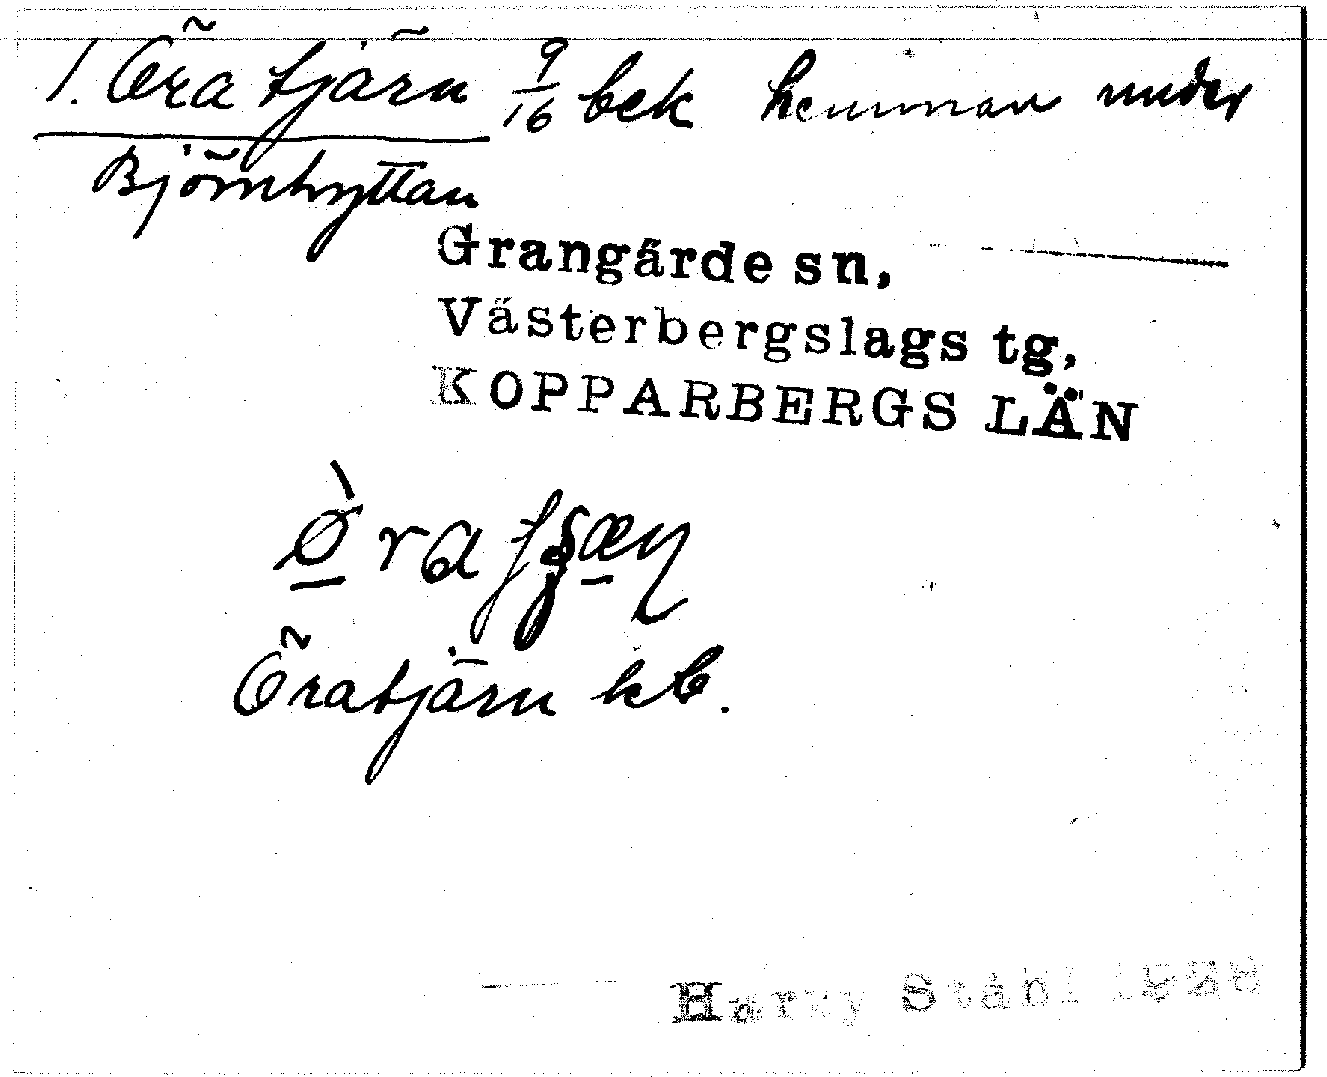 1. Öratjärn 9/16 bek hemman under
Björnhyttan
Grangärde sn,
Västerbergslags tg,
KOPPARBERGS LÄN
Öratjärn kb.
Harry Ståhl 1928